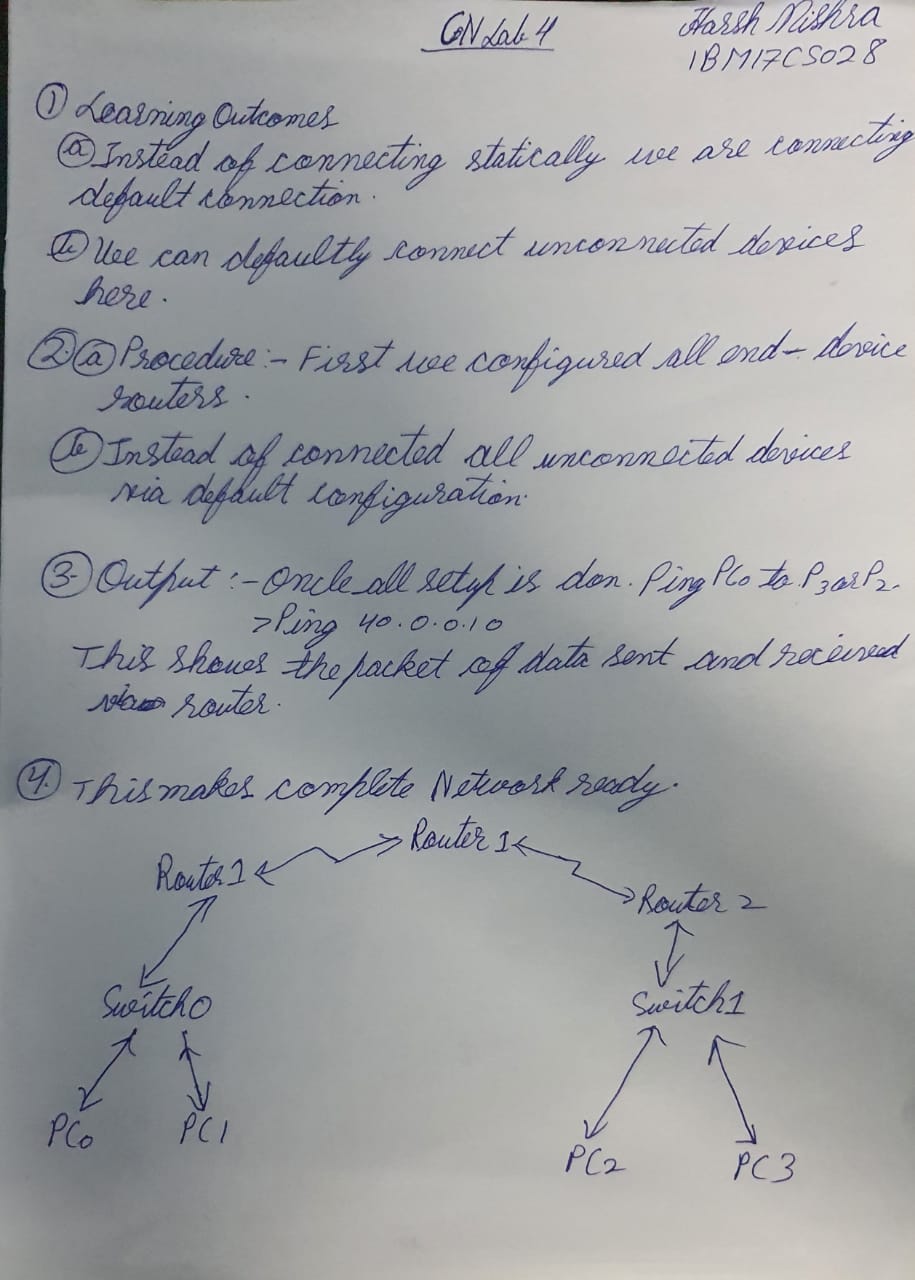 CN Lab 4
Harsh Mishra
1BM17CS028
① Learning Outcomes
ⓐ Instead of connecting statically we are connecting
default connection.
ⓑ We can defaultly connect unconnected devices
here.
② ⓐ Procedure :- First we configured all end - device
routers.
ⓑ Instead of connected all unconnected devices
via default configuration.
③ Output :- Oncle all setup is don. Ping PC0 to P3 or P2.
> Ping 40.0.0.10
This shows the packet of data sent and recieved
via router.
④ This makes complete Network ready.
Router 1
Router 1
Router 2
Switch0
Switch1
PC0
PC1
PC2
PC3